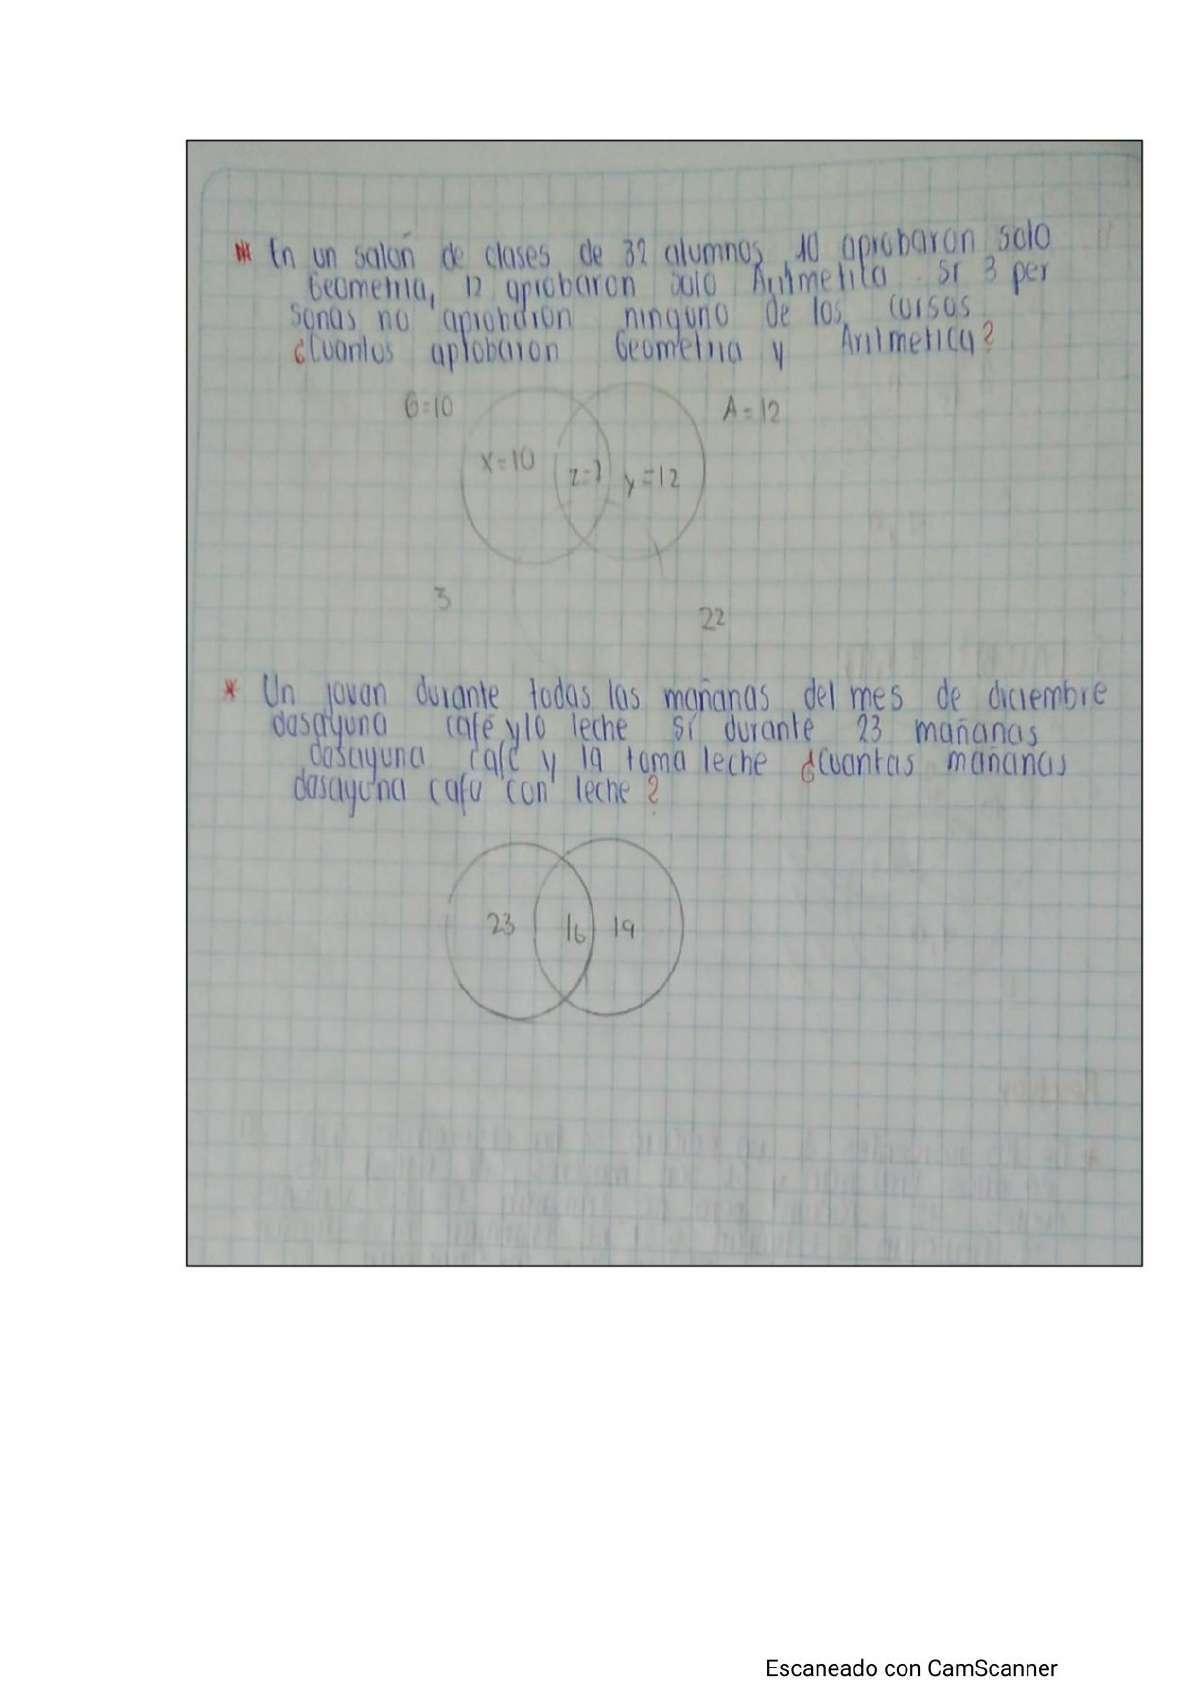 * En un salón de clases de 32 alumnos, 10 aprobaron solo
Geometria, 12 aprobaron solo Aritmetica. Si 3 per
sonas no aprobaron ninguno de los cursos
¿Cuantos aprobaron Geometria y Aritmetica?
G=10
A=12
x=10
z=7
y=12
3
22
* Un jovan durante todas las mañanas del mes de diciembre
dasayuna café y/o leche Si durante 23 mañanas
dasayuna café y 19 toma leche ¿Cuantas mañanas
dasayuna cafa con leche?
23
16
19
Escaneado con CamScanner